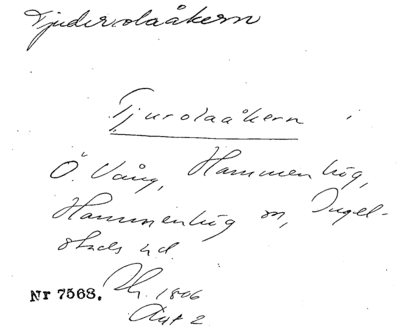 Tjuderolaåkern
Tjurolaåkern i
Ö. Vång, Hammenhög,
Hammenhög sn, Ingel-
stads hd.
Nr 7568. Sk. 1806
Akt 2